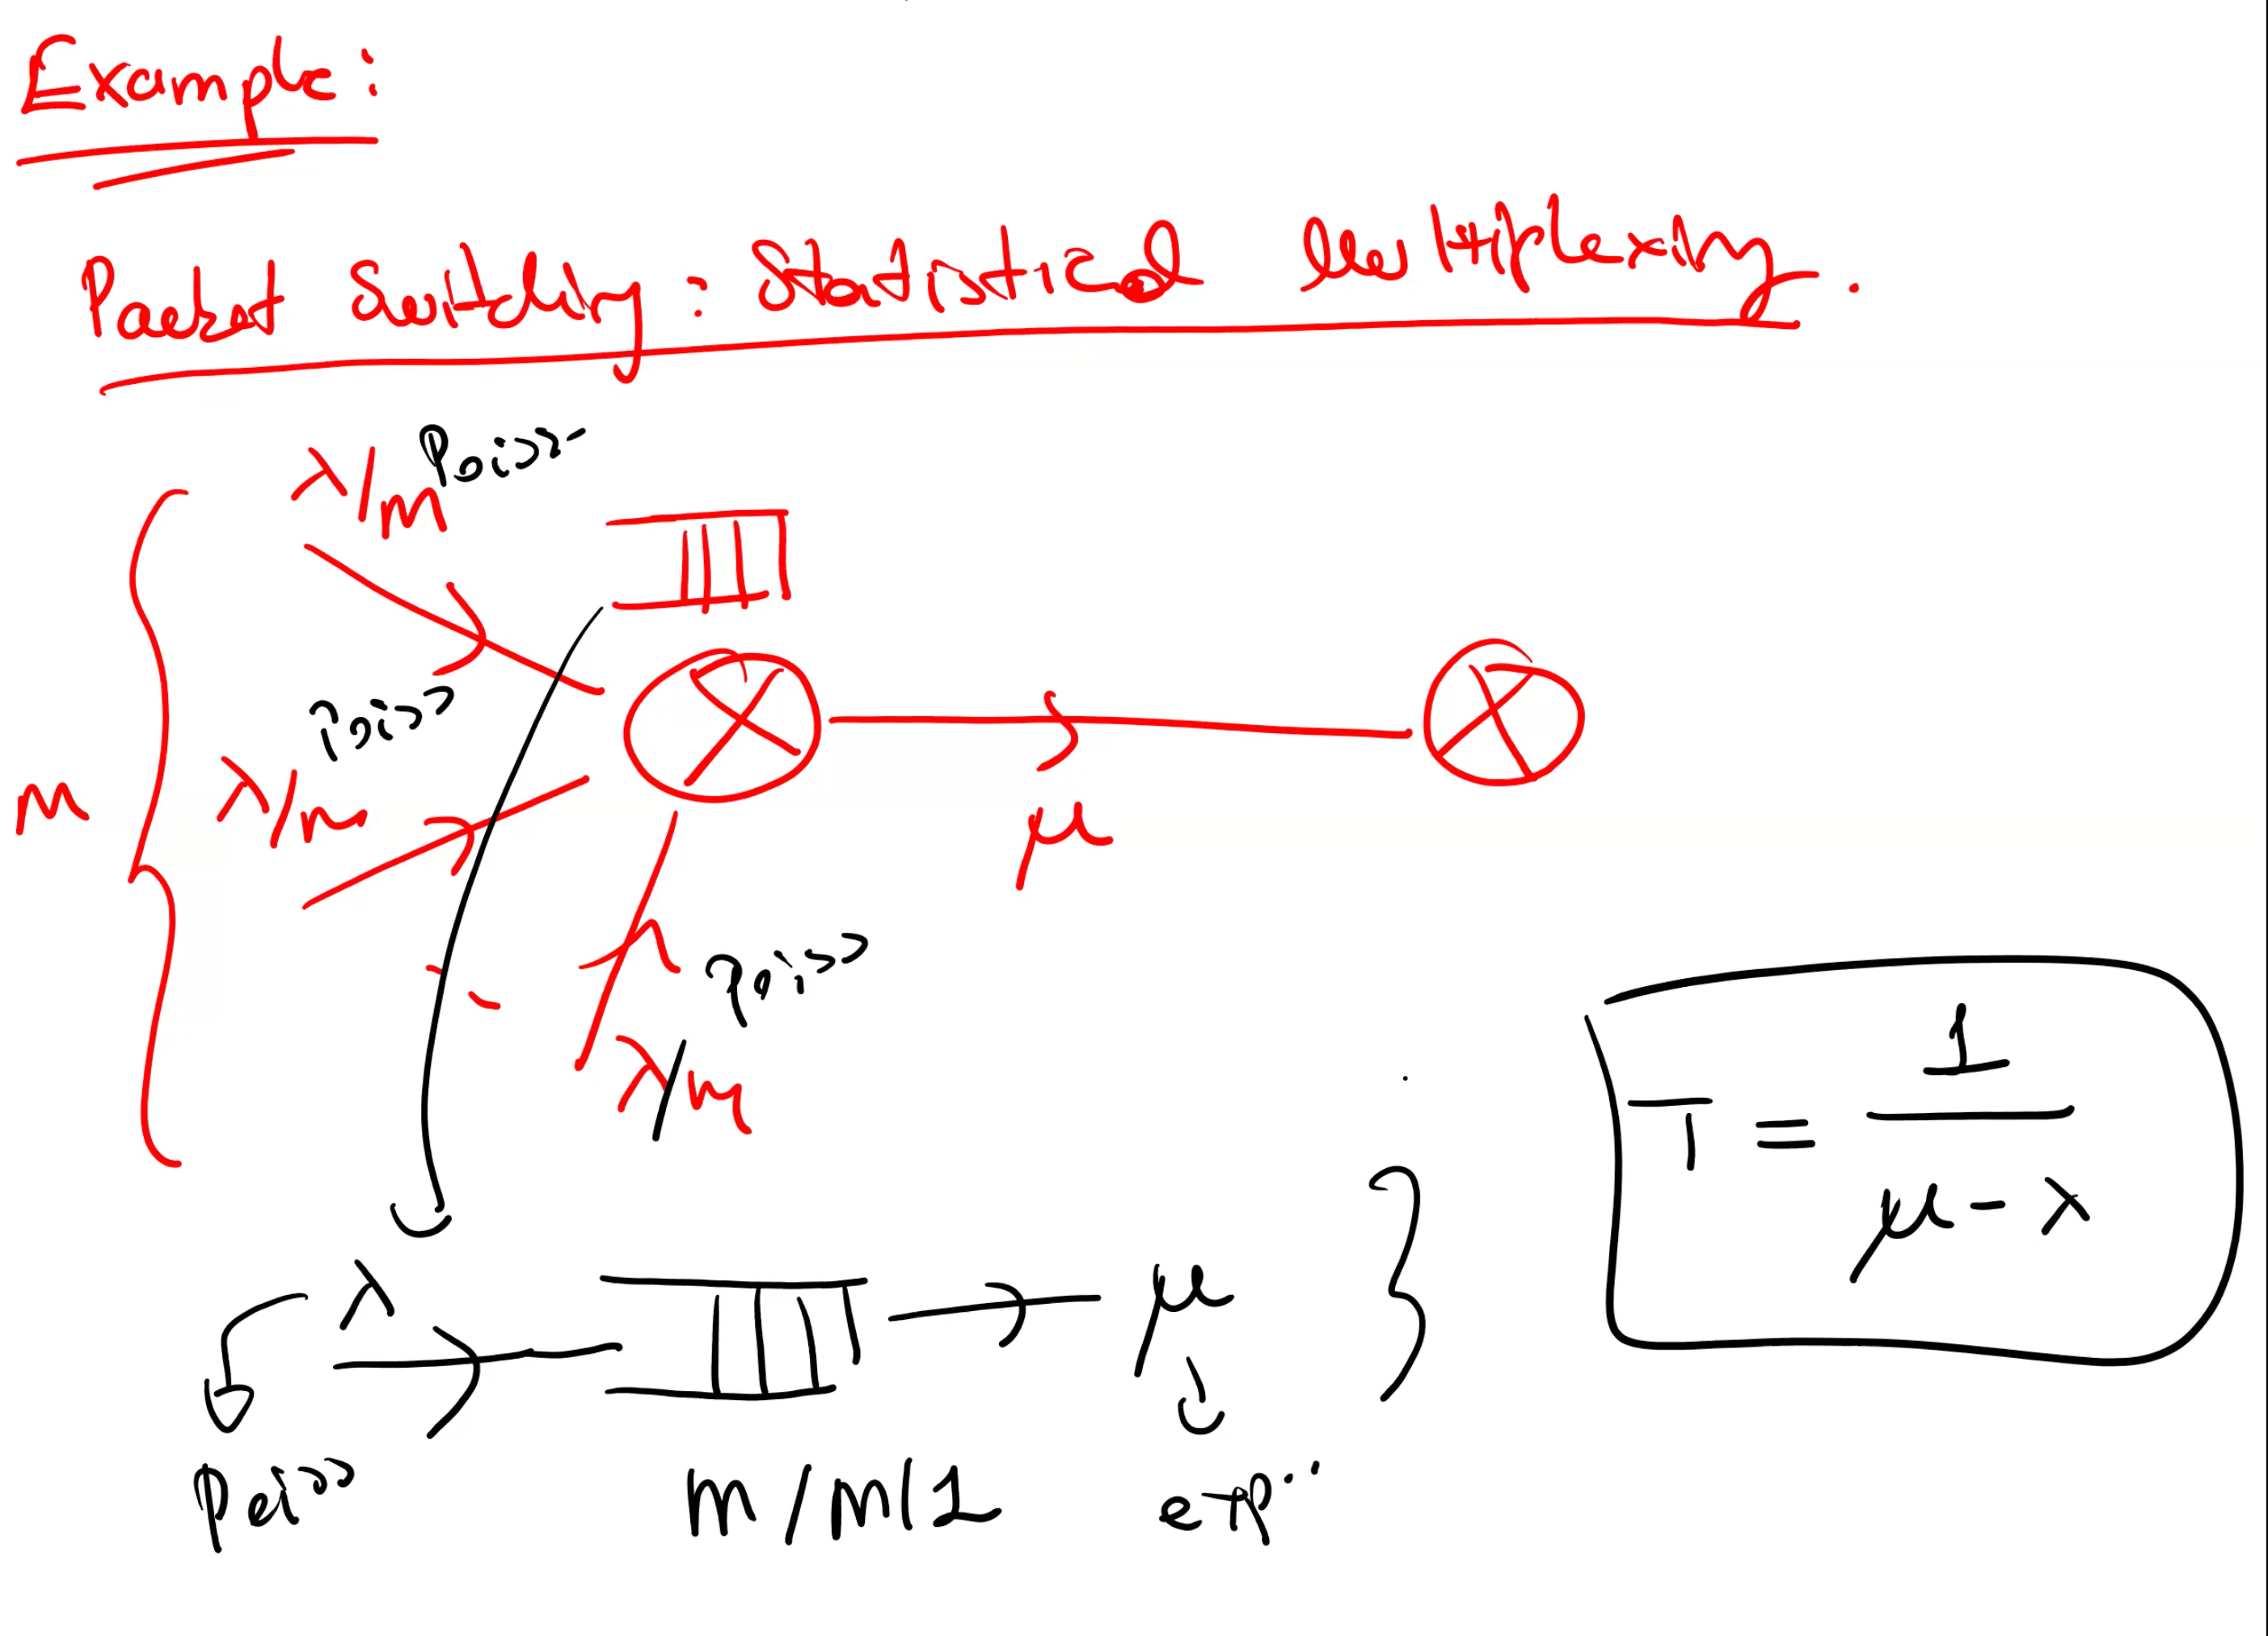 Example:
Packet Switching : Statistical Multiplexing.
λ/m Poiss
λ/m Poiss
m
μ
Poiss
λ/m
T = 1 / μ - λ
λ
μ
Poiss
M/M/1
exp